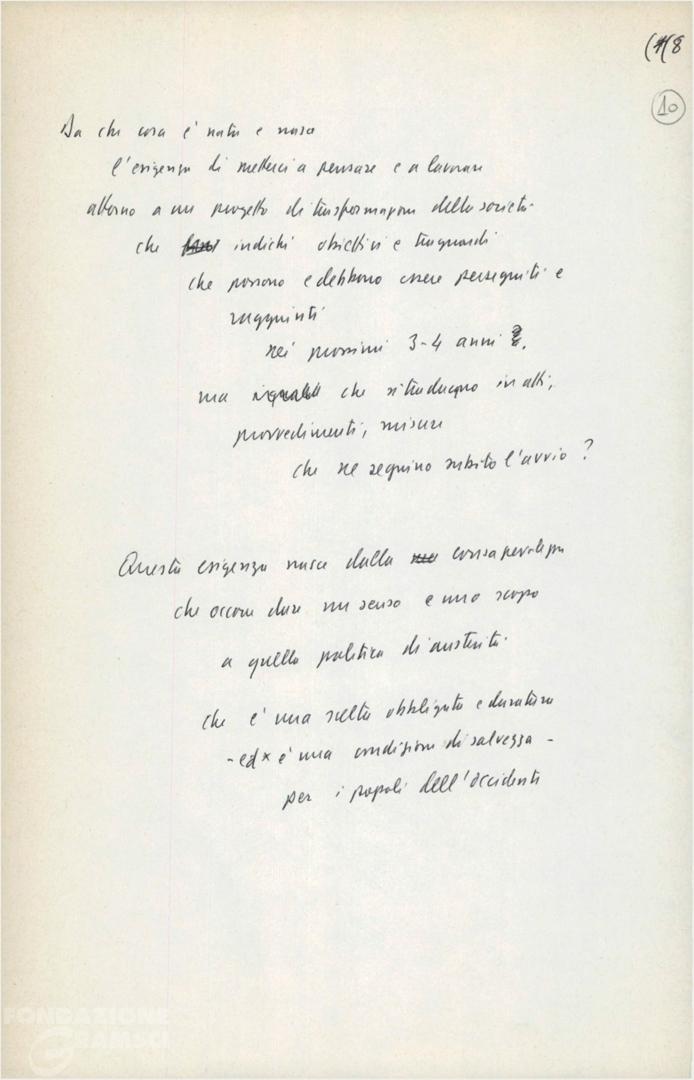 (4(8
10
Da che cosa è nata e nasce
l'esigenza di metterci a pensare e a lavorare
attorno a un progetto di trasformazione della società
che indichi obiettivi e traguardi
che possono e debbono essere perseguiti e
raggiunti
nei prossimi 3-4 anni
ma che si traducono in atti,
provvedimenti, misure
che ne segnino subito l'avvio?
Questa esigenza nasce dalla consapevolezza
che occorre dare un senso e uno scopo
a quella politica di austerità
che è una scelta obbligata e duratura
- ed x è una condizione di salvezza -
per i popoli dell'occidente
FONDAZIONE
GRAMSCI